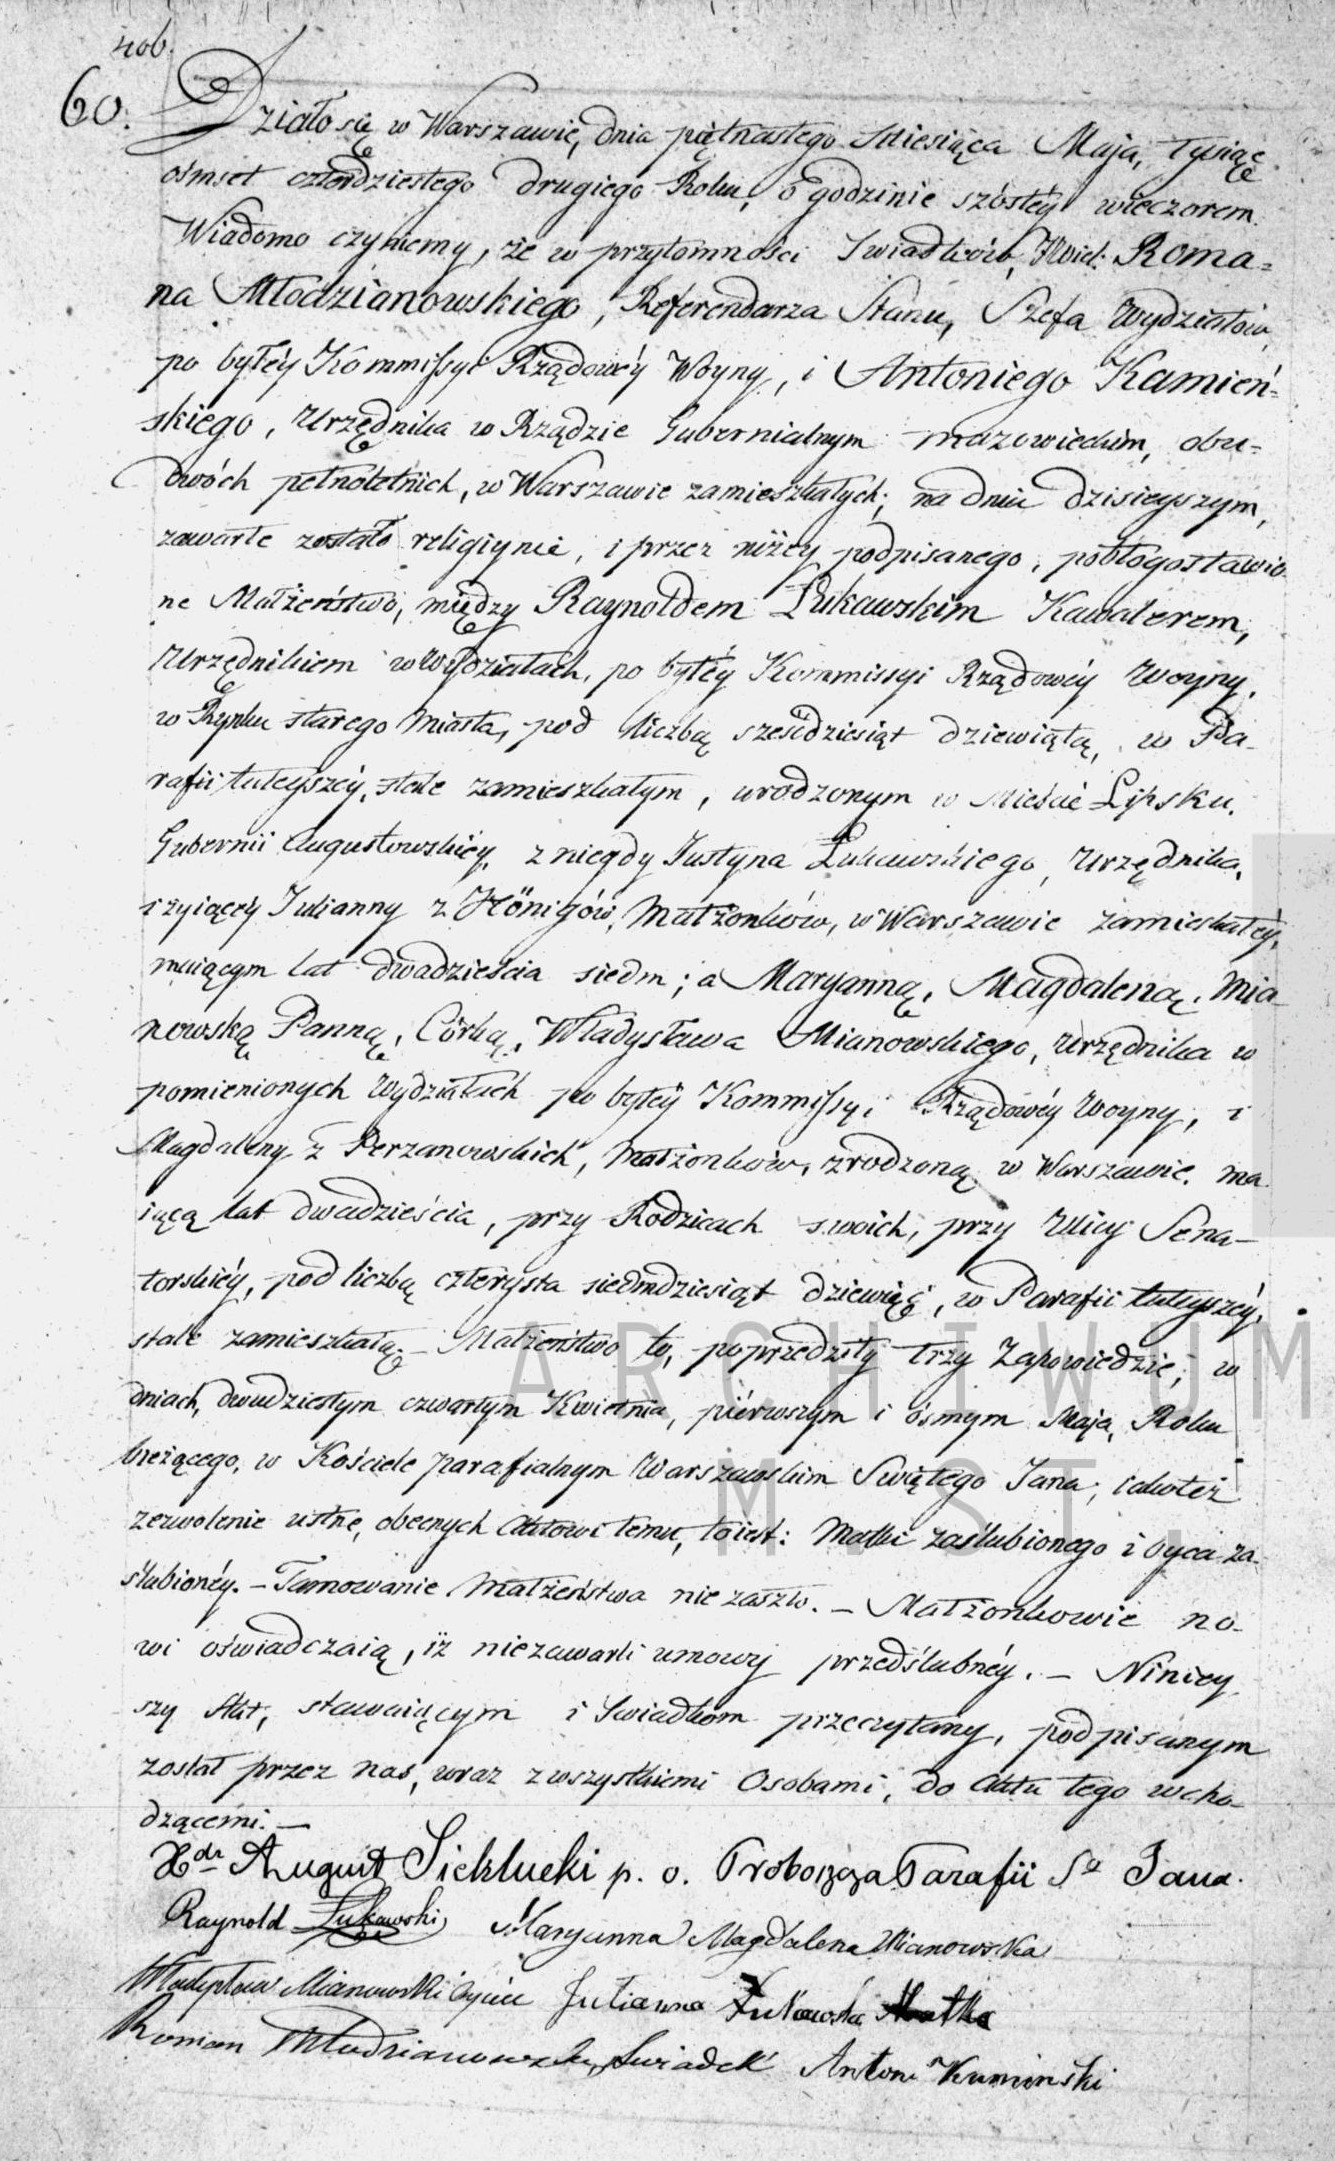 406.
60. Działo się w Warszawie, dnia piętnastego Miesiąca Maja, tysiąc
ośmset czterdziestego drugiego Roku, o godzinie szóstéy wieczorem.
Wiadomo czyniemy, że w przytomności Swiadków, Roma=
na Młodzianowskiego, Referendarza Stanu, Szefa Wydziałów,
po byłéy Kommissyi Rządowéy Woyny, i Antoniego Kamień=
skiego, Urzędnika w Rządzie Gubernialnym mazowieckim, obu=
dwóch pełnoletnich, w Warszawie zamieszkałych; na dniu dzisieyszym,
zawarte zostało religiynie, i przez niżey podpisanego, pobłogosławio
ne Małżeństwo, między Raynoldem Łukawskim Kawalerem,
Urzędnikiem w Wydziałach, po byłéy Kommissyi Rządowéy Woyny,
w Rynku starego Miasta, pod liczbą sześćdziesiąt dziewiątą, w Pa-
rafii tuteyszéy, stale zamieszkałym, urodzonym w Mieście Lipsku,
Gubernii Augustowskiéy, z niegdy Justyna Łukawskiego, Urzędnika,
i żyiącéy Julianny z Hönigów, Małżonków, w Warszawie zamieskałéy,
maiącym lat dwadzieścia siedm; a Maryanną, Magdaleną, Mia
nowską Panną, Córką, Władysława Mianowskiego, Urzędnika w
pomienionych Wydziałach po byłéy Kommissyi Rządowéy Woyny, i
Magdaleny z Perzanowskich, Małżonków, zrodzoną w Warszawie, ma
iącą lat dwadzieścia, przy Rodzicach swoich, przy Ulicy Sena-
torskiéy, pod liczbą czterysta siedmdziesiąt dziewięć, w Parafii tuteyszéy,
stale zamieszkałą. - Małżeństwo to, poprzedziły trzy Zapowiedzie, w
dniach, dwudziestym czwartym Kwietnia, piérwszym i ósmym Maja, Roku
bieżącego, w Kościele parafialnym Warszawskim Swiętego Jana; iakoteż
zezwolenie ustne, obecnych Aktowi temu, toiest: Matki zaślubionego i Oyca za-
ślubionéy. - Tamowanie Małżeństwa nie zaszło. - Małżonkowie no-
wi oświadczaią, iż niezawarli umowy przedślubnéy. - Niniey
szy Akt, stawaiącym i Swiadkom przeczytany, podpisanym
został przez nas, wraz z wszystkiemi Osobami, do Aktu tego wcho-
dzącemi. -
August Sieklucki p. o. Proboszcza Parafii Sº Jana.
Raynold Łukawski Maryanna Magdalena Mianowska
Władysław Mianowski Oyciec Julianna Łukawska Matka
Roman Młodzianowski, Swiadek Antoni Kamieński
ARCHIWUM
M. ST.